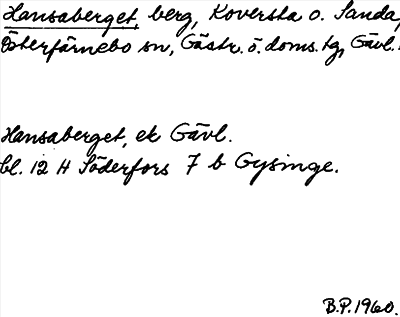 Hansaberget, berg, Koversta o. Sanda,
Österfärnebo sn, Gästr. ö. doms. tg, Gävl.
Hansaberget, ek Gävl.
bl. 12 H Söderfors 7 b Gysinge.
B.P. 1960.